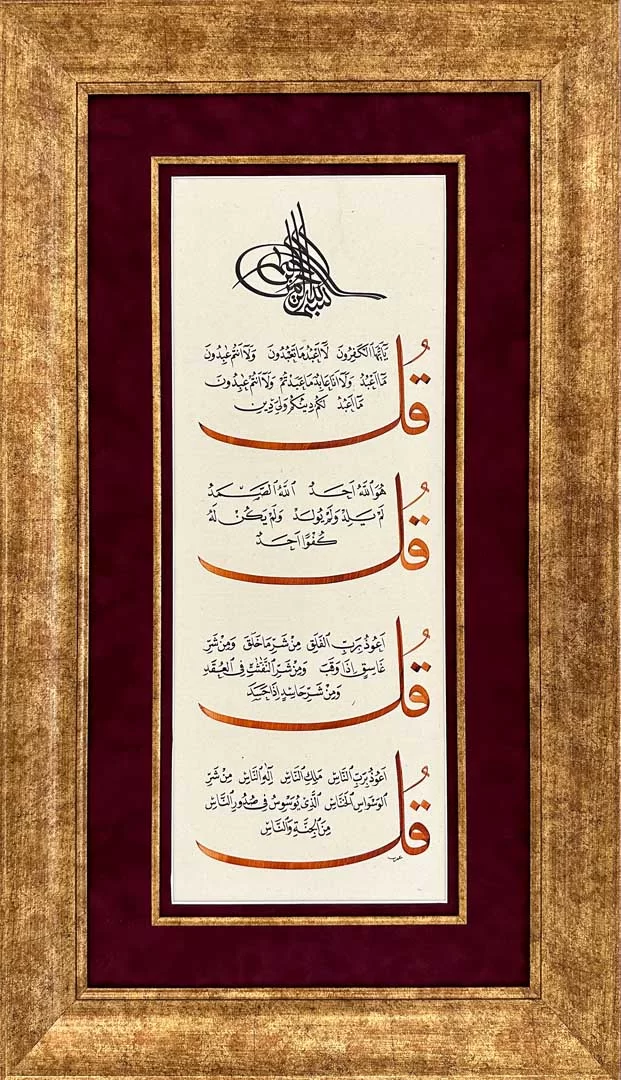 بسم الله الرحمن الرحيم
قُلْ يَٓا اَيُّهَا الْكَافِرُونَ لَٓا اَعْبُدُ مَا تَعْبُدُونَ وَلَٓا اَنْتُمْ عٰبِدُونَ
مَٓا اَعْبُدُ وَلَٓا اَنَا۬ عَابِدٌ مَا عَبَدْتُمْ وَلَٓا اَنْتُمْ عٰبِدُونَ
مَٓا اَعْبُدُ لَكُمْ دِينُكُمْ وَلِيَ دِينِ
قُلْ هُوَ اللّٰهُ اَحَدٌ اَللّٰهُ الصَّمَدُ
لَمْ يَلِدْ وَلَمْ يُولَدْ وَلَمْ يَكُنْ لَهُ
كُفُوًا اَحَدٌ
قُلْ اَعُوذُ بِرَبِّ الْفَلَقِ مِنْ شَرِّ مَا خَلَقَ وَمِنْ شَرِّ
غَاسِقٍ اِذَا وَقَبَ وَمِنْ شَرِّ النَّفّٰثٰتِ فِي الْعُقَدِ
وَمِنْ شَرِّ حَاسِدٍ اِذَا حَسَدَ
قُلْ اَعُوذُ بِرَبِّ النَّاسِ مَلِكِ النَّاسِ اِلٰهِ النَّاسِ مِنْ شَرِّ
الْوَسْوَاسِ الْخَنَّاسِ الَّذِي يُوَسْوِسُ فِي صُدُورِ النَّاسِ
مِنَ الْجِنَّةِ وَالنَّاسِ